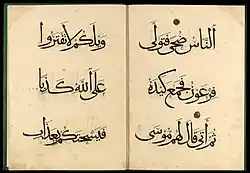 الناس ضحى فتولى
فرعون فجمع كيده
ثم أتى قال لهم موسى
ويلكم لا تفتروا
على الله كذبا
فيسحتكم بعذاب